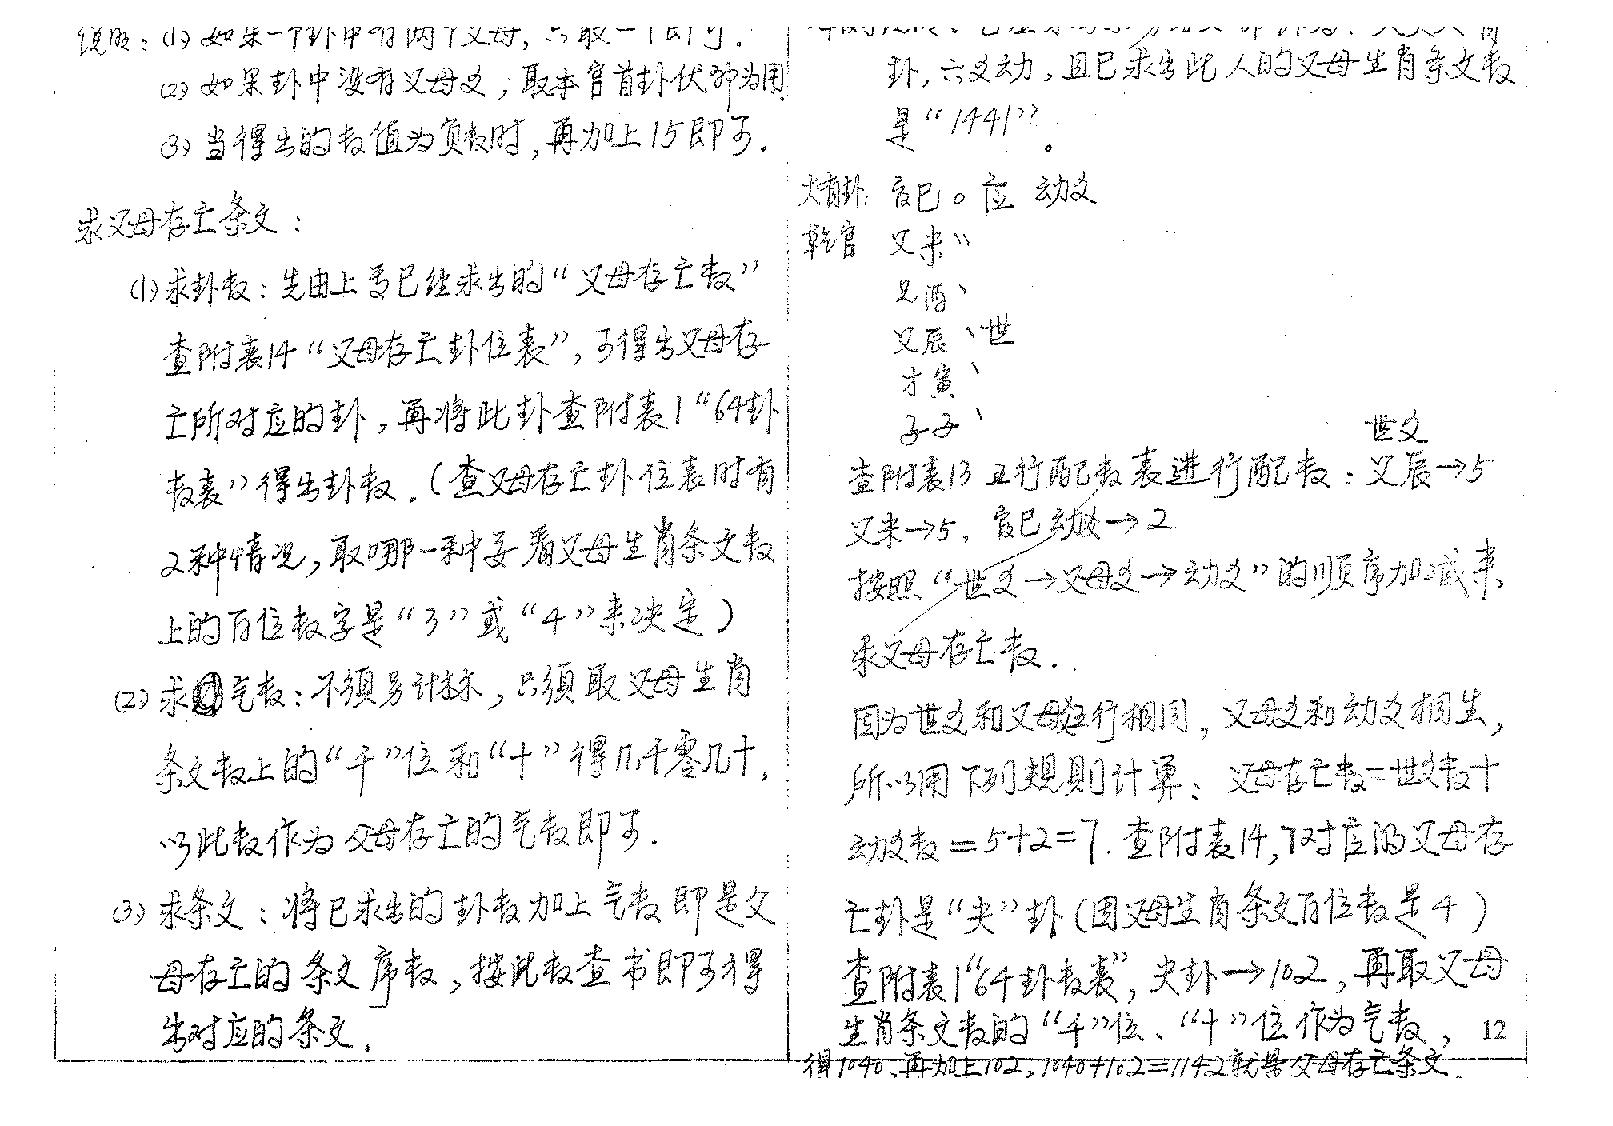 说明：(1) 如果一个卦中有两个父母，只取一个即可．
(2) 如果卦中没有父母爻，取本宫首卦伏神为用
(3) 当得出的数值为负数时，再加上15即可．
求父母存亡条文：
(1) 求卦数：先由上面已经求出的“父母存亡数”
查附表14“父母存亡卦位表”，可得出父母存
亡所对应的卦，再将此卦查附表1“64卦
数表”得出卦数．（查父母存亡卦位表时有
2种情况，取哪一种要看父母生肖条文数
上的百位数字是“3”或“4”来决定）
(2) 求气数：不须另计算，只须取父母生肖
条文数上的“千”位和“十”得几千零几十，
以此数作为父母存亡的气数即可．
(3) 求条文：将已求出的卦数加上气数即是父
母存亡的条文序数，按此数查书即可得
出对应的条文．
卦，六爻动，且已求出此人的父母生肖条文数
是“1441”。
大有卦： 官巳。应 动爻
乾宫 父未〃
兄酉、
父辰、世
才寅、
子子、
世爻
查附表13 五行配数表进行配数：父辰→5
父未→5，官巳动爻→2
按照“世爻→父母爻→动爻”的顺序加减来
求父母存亡数．
因为世爻和父母五行相同，父母爻和动爻相生，
所以用下列规则计算：父母存亡数=世爻数+
动爻数=5+2=7．查附表14，7对应的父母存
亡卦是“夬”卦（因父母生肖条文百位数是4）
查附表1“64卦数表”，夬卦→102，再取父母
生肖条文数的“千”位、“十”位作为气数，
得1040，再加上102，1040+102=1142就是父母存亡条文．
12